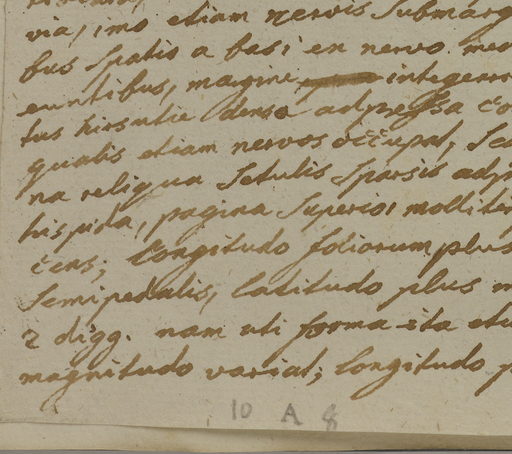 via, imo etiam nervis submarg
bus spatio a basi en nervo me
euntibus, margine integerr
tus hirsutie densa adpressa co
qualis etiam nervos occupat, sed
na reliqua setulis sparsis adp
hispida, pagina superior molliter
cens; longitudo foliorum plus
semipedalis, latitudo plus m
2 digg. nam uti forma ita et
magnitudo variat; longitudo p
10 A 8